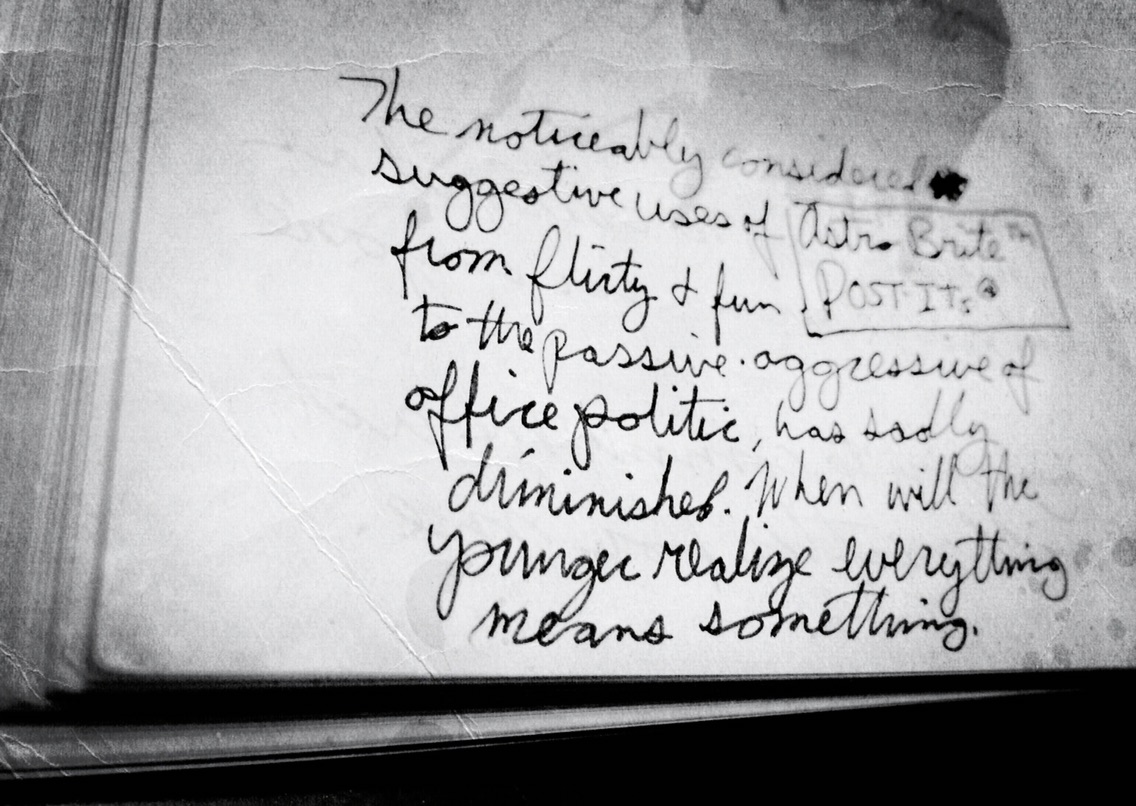 The noticeably considered
suggestive uses of Astro Brite™
POST-ITs®
from flirty & fun
to the passive-aggressive of
office politic, has sadly
diminished. When will the
younger realize everything
means something.